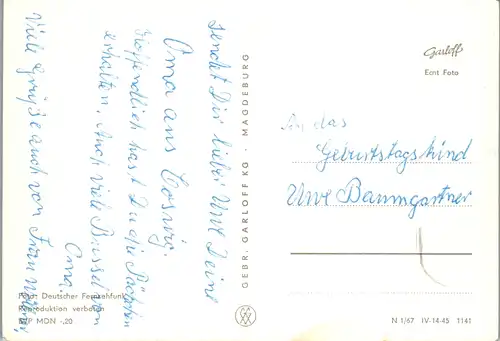 sendet Dir lieber Uwe Deine
Oma aus Coswig.
Hoffendlich hast Du die Päckchen
erhalten. Auch viele Grüsse von
Oma.
Viele Grüße auch von Frau
GEBR. GARLOFF KG · MAGDEBURG
Garloff
Echt Foto
An das
Geburtstagskind
Uwe Baumgartner
Foto: Deutscher Fernsehfunk
Reproduktion verboten
EVP MDN -,20
N 1/67 IV-14-45 1141